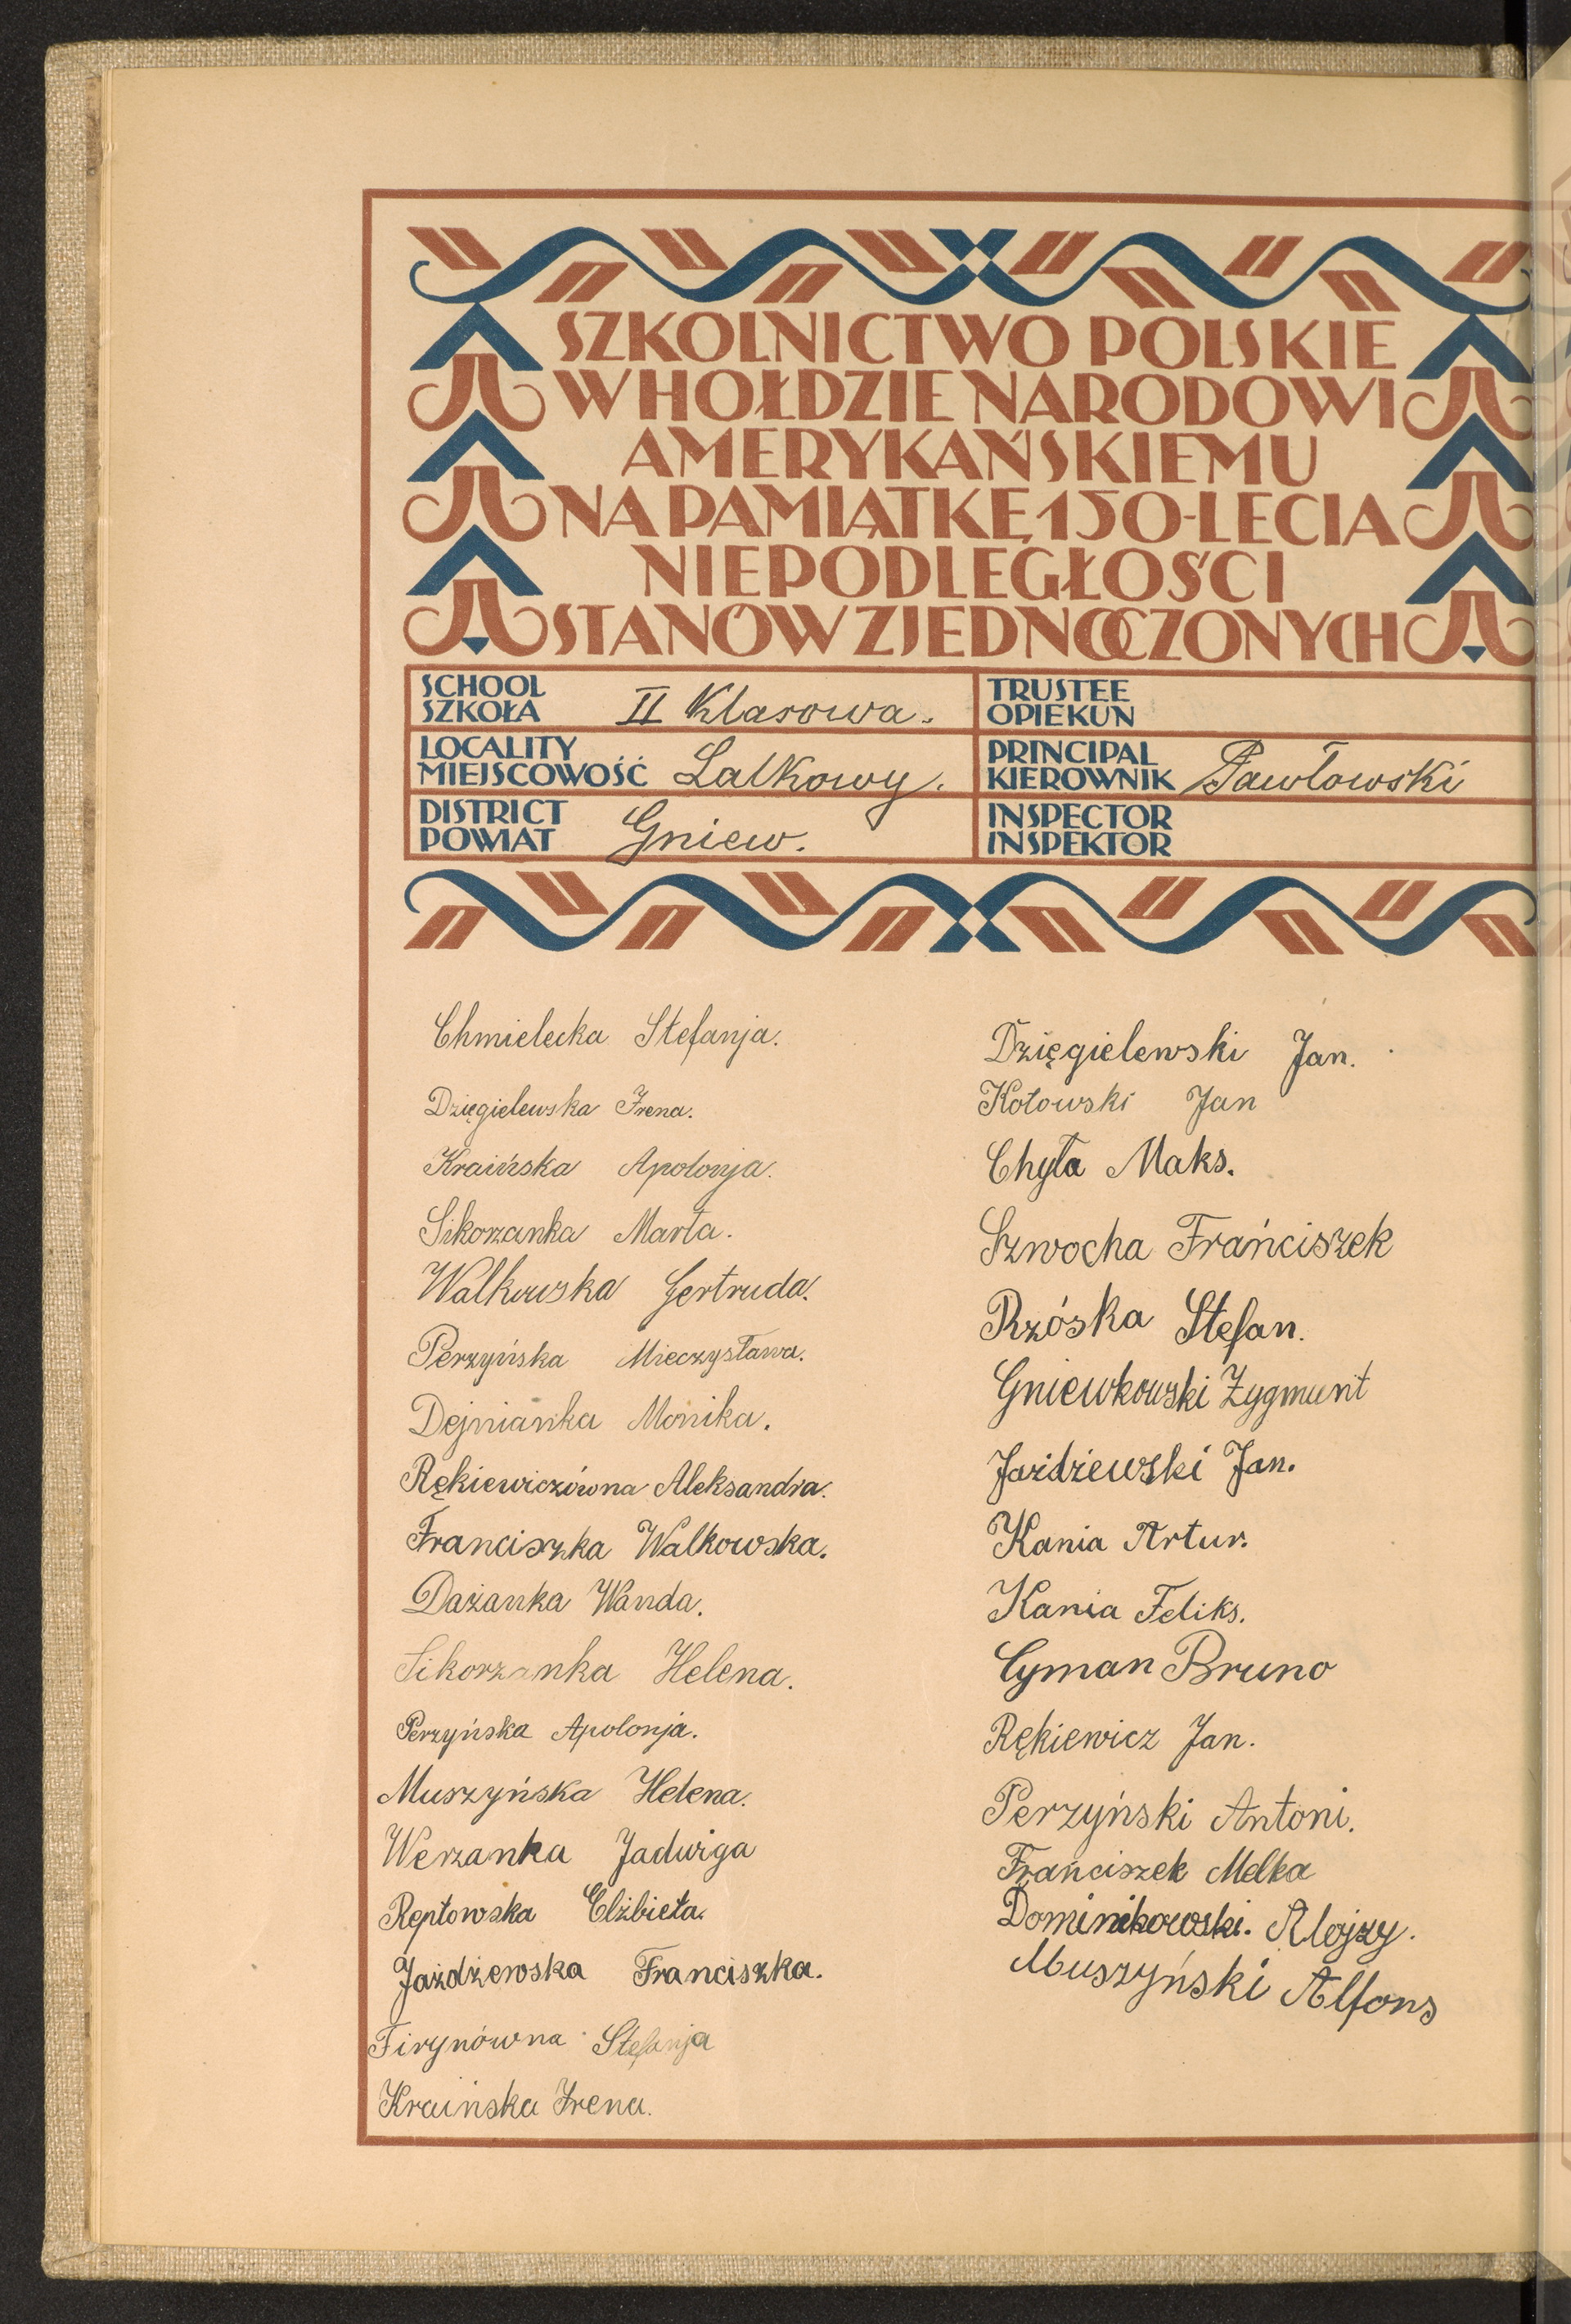 SZKOLNICTWO POLSKIE
W HOŁDZIE NARODOWI
AMERYKAŃSKIEMU
NA PAMIĄTKĘ 150-LECIA
NIEPODLEGŁOŚCI
STANÓW ZJEDNOCZONYCH
SCHOOL
SZKOŁA II Klasowa.
TRUSTEE
OPIEKUN
LOCALITY
MIEJSCOWOŚĆ Lalkowy.
PRINCIPAL
KIEROWNIK Pawłowski
DISTRICT
POWIAT Gniew.
INSPECTOR
INSPEKTOR
Chmielecka Stefanja.
Dzięgielewska Irena.
Kraińska Apolonja.
Sikorzanka Marta.
Walkowska Gertruda.
Perzyńska Mieczysława.
Dejnianka Monika.
Rękiewiczówna Aleksandra.
Franciszka Walkowska.
Dażanka Wanda.
Sikorzanka Helena.
Perzyńska Apolonja.
Muszyńska Helena.
Werzanka Jadwiga
Reptowska Elżbieta.
Jażdżewska Franciszka.
Firynówna Stefanja
Kraińska Irena.
Dzięgielewski Jan.
Kotowski Jan
Chyła Maks.
Szwocha Frańciszek
Rzóska Stefan.
Gniewkowski Zygmunt
Jażdżewski Jan.
Kania Artur.
Kania Feliks.
Cyman Bruno
Rękiewicz Jan.
Perzyński Antoni.
Frańciszek Melka
Dominikowski. Alojzy.
Muszyński Alfons